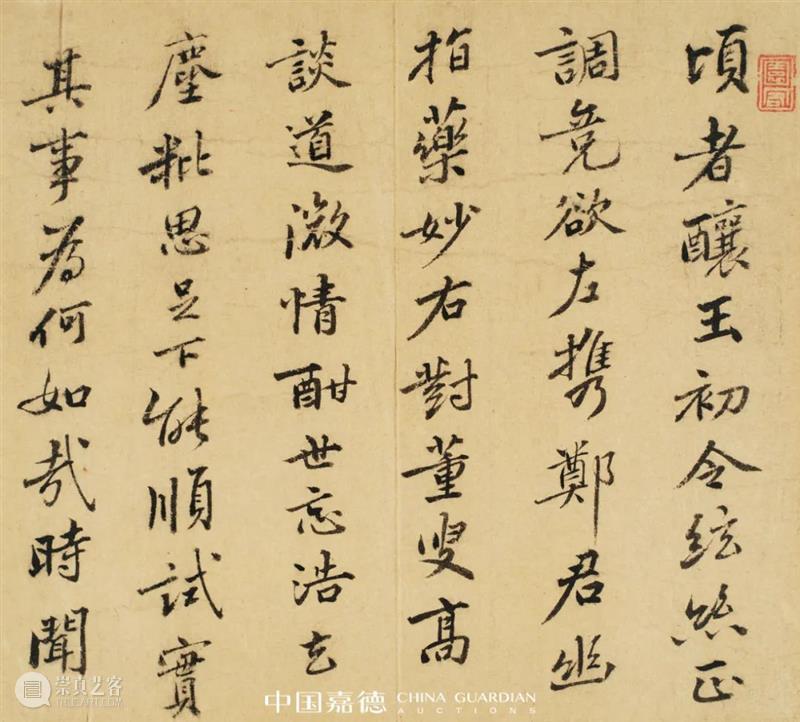 頃者釀王初令絃絲正
調竟欲左携鄭君幽
指藥妙右對董叟高
談道情酣世忘浩
塵粃思足下能順試實
其事為何如哉時聞
崇真艺客
中国嘉德 CHINA GUARDIAN
AUCTIONS